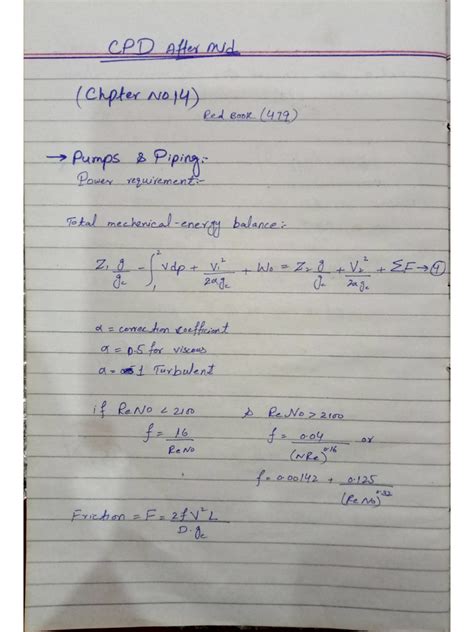 CPD After Md
(Chpter No 14)
Red Book (479)
→ Pumps & Piping:-
Power requirement:-
Total mechenical-energy balance:-
Z₁ g/gc - ∫₁² vdp + V₁²/2αgc + W₀ = Z₂ g/gc + V₂²/2αgc + ΣF → ①
α = correction coefficient
α = 0.5 for viscous
α = 1 Turbulent
if Re No < 2100
f = 16/Re No
Re No > 2100
f = 0.04/(NRe)^0.16 or
f = 0.00142 + 0.125/(Re No)^0.32
Friction = F = 2fV²L/D.gc